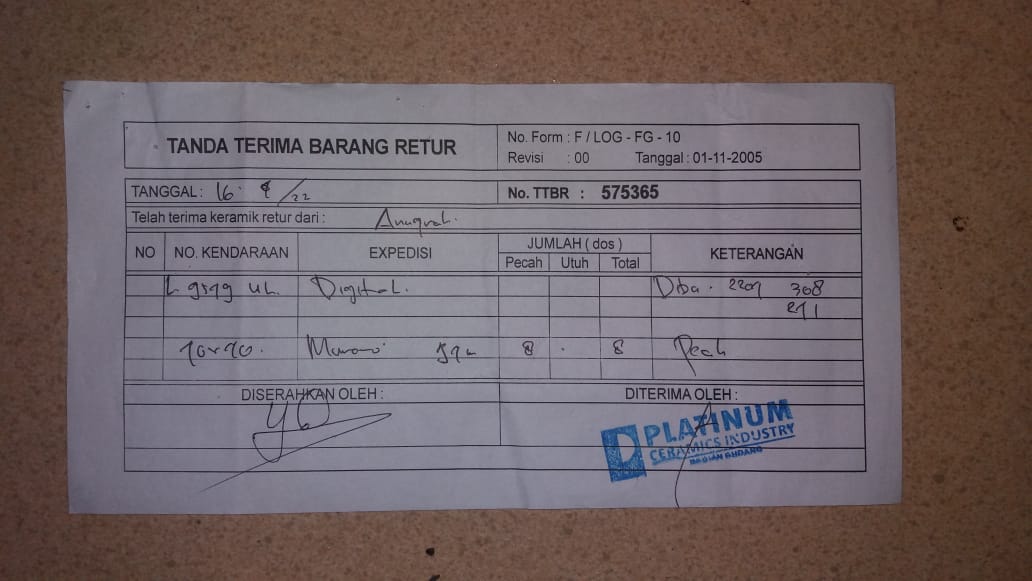 TANDA TERIMA BARANG RETUR
No. Form : F / LOG - FG - 10
Revisi : 00 Tanggal : 01-11-2005
TANGGAL : 16 /22
No. TTBR : 575365
Telah terima keramik retur dari : Anugrah.
NO NO. KENDARAAN EXPEDISI JUMLAH ( dos ) KETERANGAN
Pecah Utuh Total
L Digital. Dba. 2207 308
271
8 . 8
DISERAHKAN OLEH : DITERIMA OLEH :
PLATINUM
CERAMICS INDUSTRY
BAGIAN GUDANG